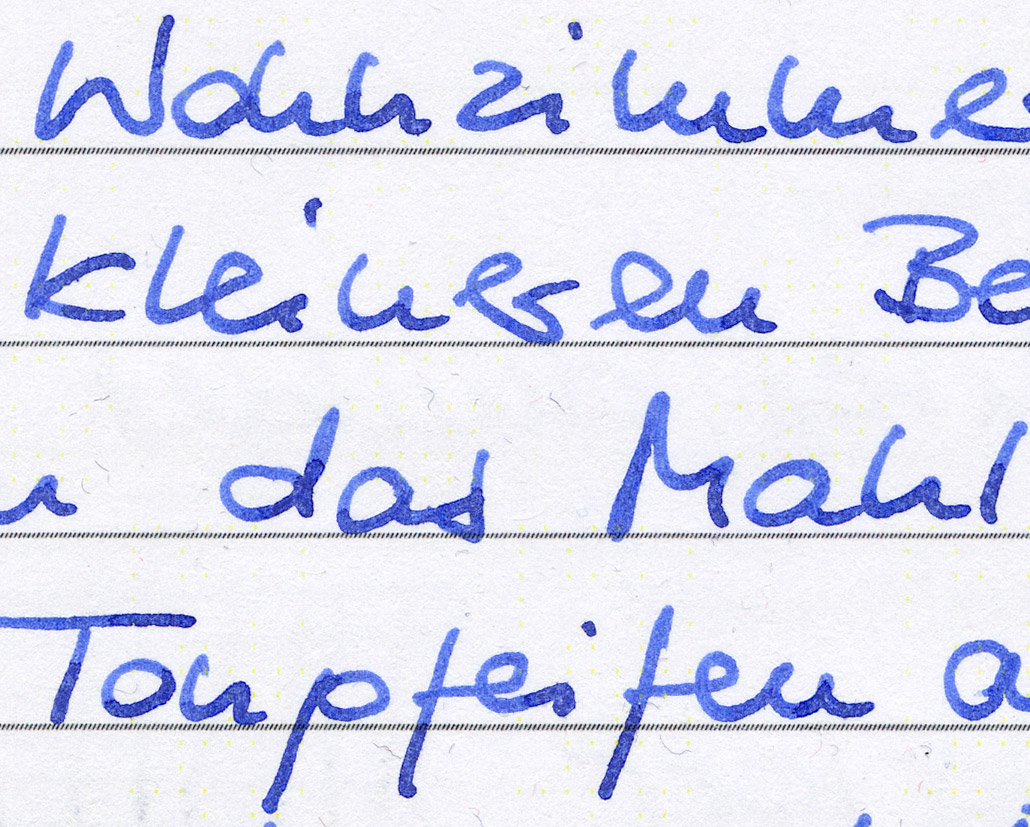 Wohnzimme
kleineren Be
n das Mahl
Tonpfeifen a